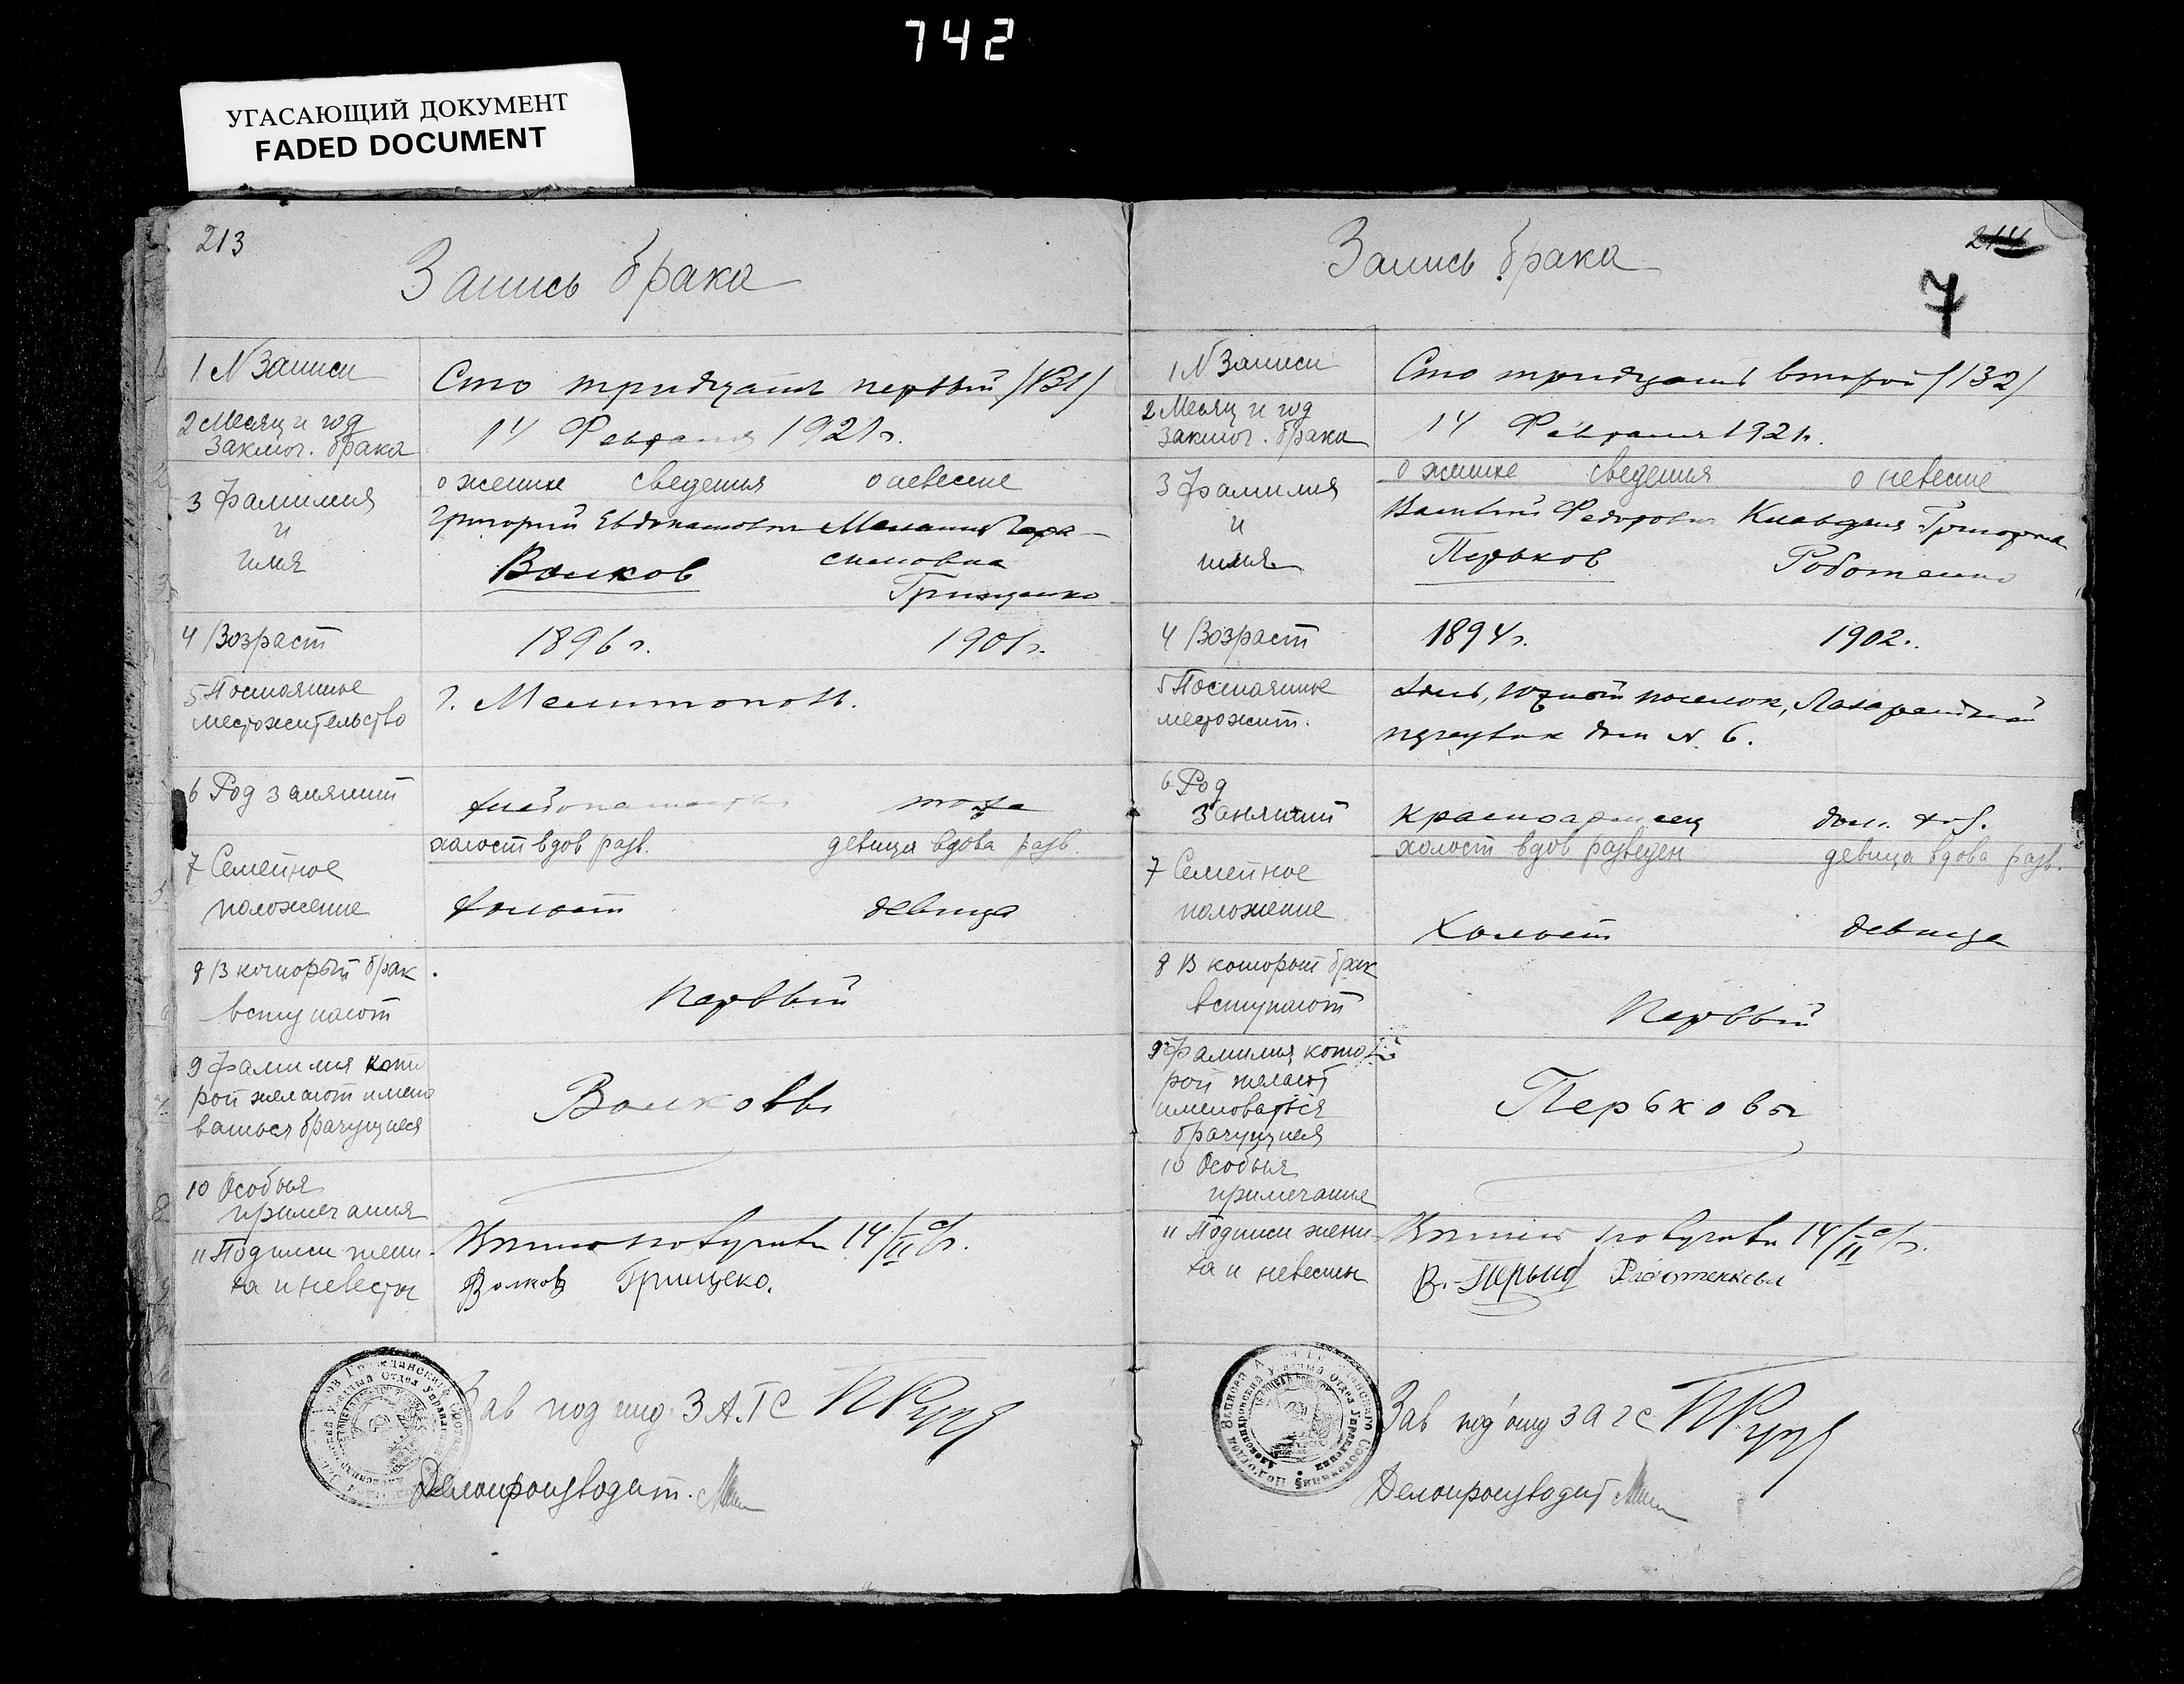 742
УГАСАЮЩИЙ ДОКУМЕНТ
FADED DOCUMENT
213
Запись брака
1 N Записи
Сто тридцать первый /131/
2 Месяц и год
заключ. брака
14 Февраля 1921 г.
3 Фамилия
и
имя
о женихе сведения о невесте
Григорий Евдокимович Мелания Гера-
симовна
Волков
Грищенко
4 Возраст
1896 г. 1901 г.
5 Постоянное
местожительство
г. Мелитополь.
6 Род занятий
хлебопашество тоже
7 Семейное
положение
холост вдов разв. девица вдова разв.
холост девица
8 В который брак
вступают
Первый
9 Фамилия кото
рой желают имено
ваться брачущиеся
Волковы
10 Особыя
примечания
11 Подписи жени-
ха и невесты
14/II с/г.
Волков Грищеко.
Зав под отд. З А.Г С
Делопроизводит.
Запись брака
7
1 N Записи
Сто тридцать второй /132/
2 Месяц и год
заключ. брака
14 Февраля 1921 г.
3 Фамилия
и
имя
о женихе сведения о невесте
Василий Федорович Клавдия Григорьевна
Перьков
4 Возраст
1894 г. 1902 г.
5 Постоянное
местожит.
поселок,
дом N. 6.
6 Род
занятий
красноармеец дом. хоз.
7 Семейное
положение
холост вдов разведен девица вдова разв.
Холост девица
8 В который брак
вступают
Первый
9 Фамилия кото
рой желают
именоваться
брачущиеся
Перьковы
10 Особыя
примечания
11 Подписи жени-
ха и невесты
14/II с/г.
Зав под отд ЗАГС
Делопроизводит